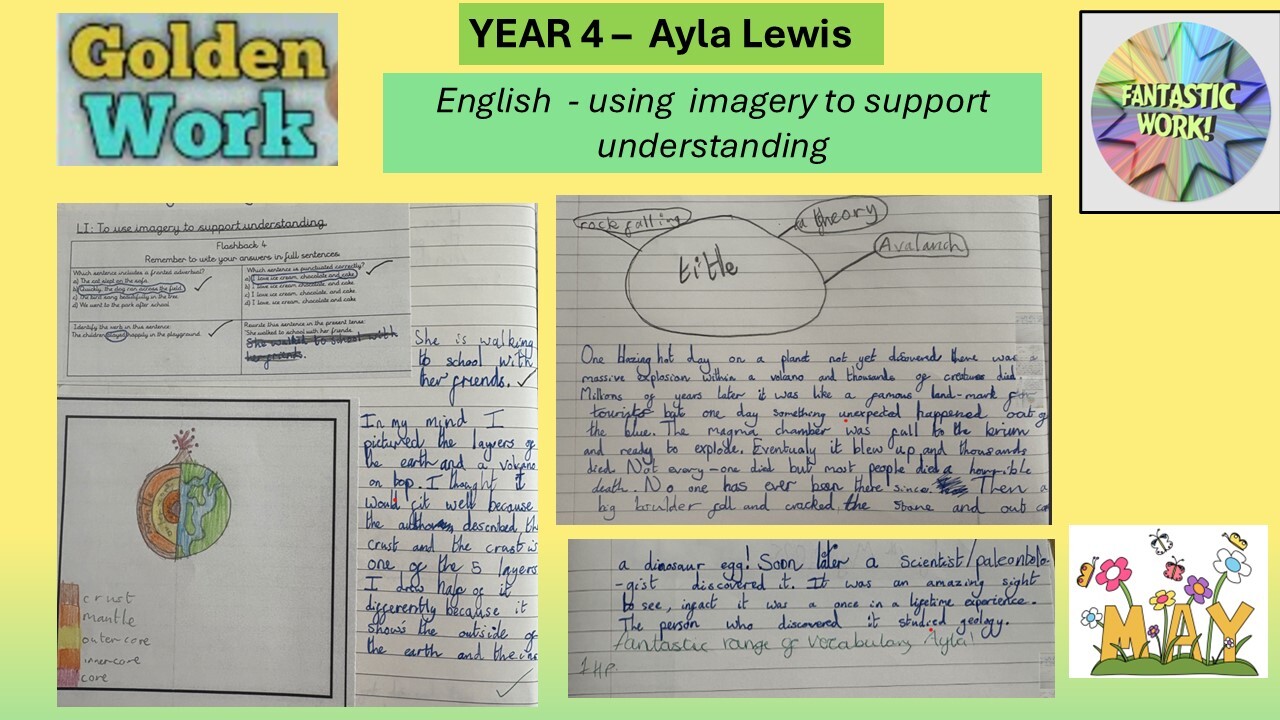 Golden
Work
YEAR 4 – Ayla Lewis
English - using imagery to support
understanding
FANTASTIC
WORK!
LI: To use imagery to support understanding
Flashback 4
Remember to write your answers in full sentences
Which sentence includes a fronted adverbial?
a) The cat slept on the sofa.
b) Quickly, the dog ran across the field.
c) The bird sang beautifully in the tree.
d) We went to the park after school
Which sentence is punctuated correctly?
a) I love ice cream, chocolate and cake.
b) I love ice cream, chocolate, and cake
c) I love ice cream, chocolate and cake
d) I love, ice cream, chocolate and cake
Identify the verb in this sentence:
The children played happily in the playground
Rewrite this sentence in the present tense:
She walked to school with her friends.
She walked to school with
her friends.
She is walking
to school with
her friends.
In my mind I
pictured the layers of
the earth and a volcano
on top. I thought it
would fit well because
the author described th
crust and the crust is
one of the 5 layers
I drew half of it
differently because it
shows the outside of
the earth and the ins
crust
mantle
outer core
inner core
core
rock falling
a theory
Avalanch
title
One blazing hot day on a planet not yet discovered there was a
massive explosion within a volcano and thousands of creatures died.
Millions of years later it was like a famous land-mark for
tourists but one day something unexpected happened out of
the blue. The magma chamber was full to the brium
and ready to explode. Eventualy it blew up and thousands
died. Not every-one died but most people died a horrible
death. No one has ever been there since. Then a
big boulder fell and cracked the stone and out ca
a dinosaur egg! Soon later a Scientist/paleontolo-
-gist discovered it. It was an amazing sight
to see, infact it was a once in a lifetime experience.
The person who discovered it studied geology.
Fantastic range of vocabulary Ayla!
1HP.
MAY